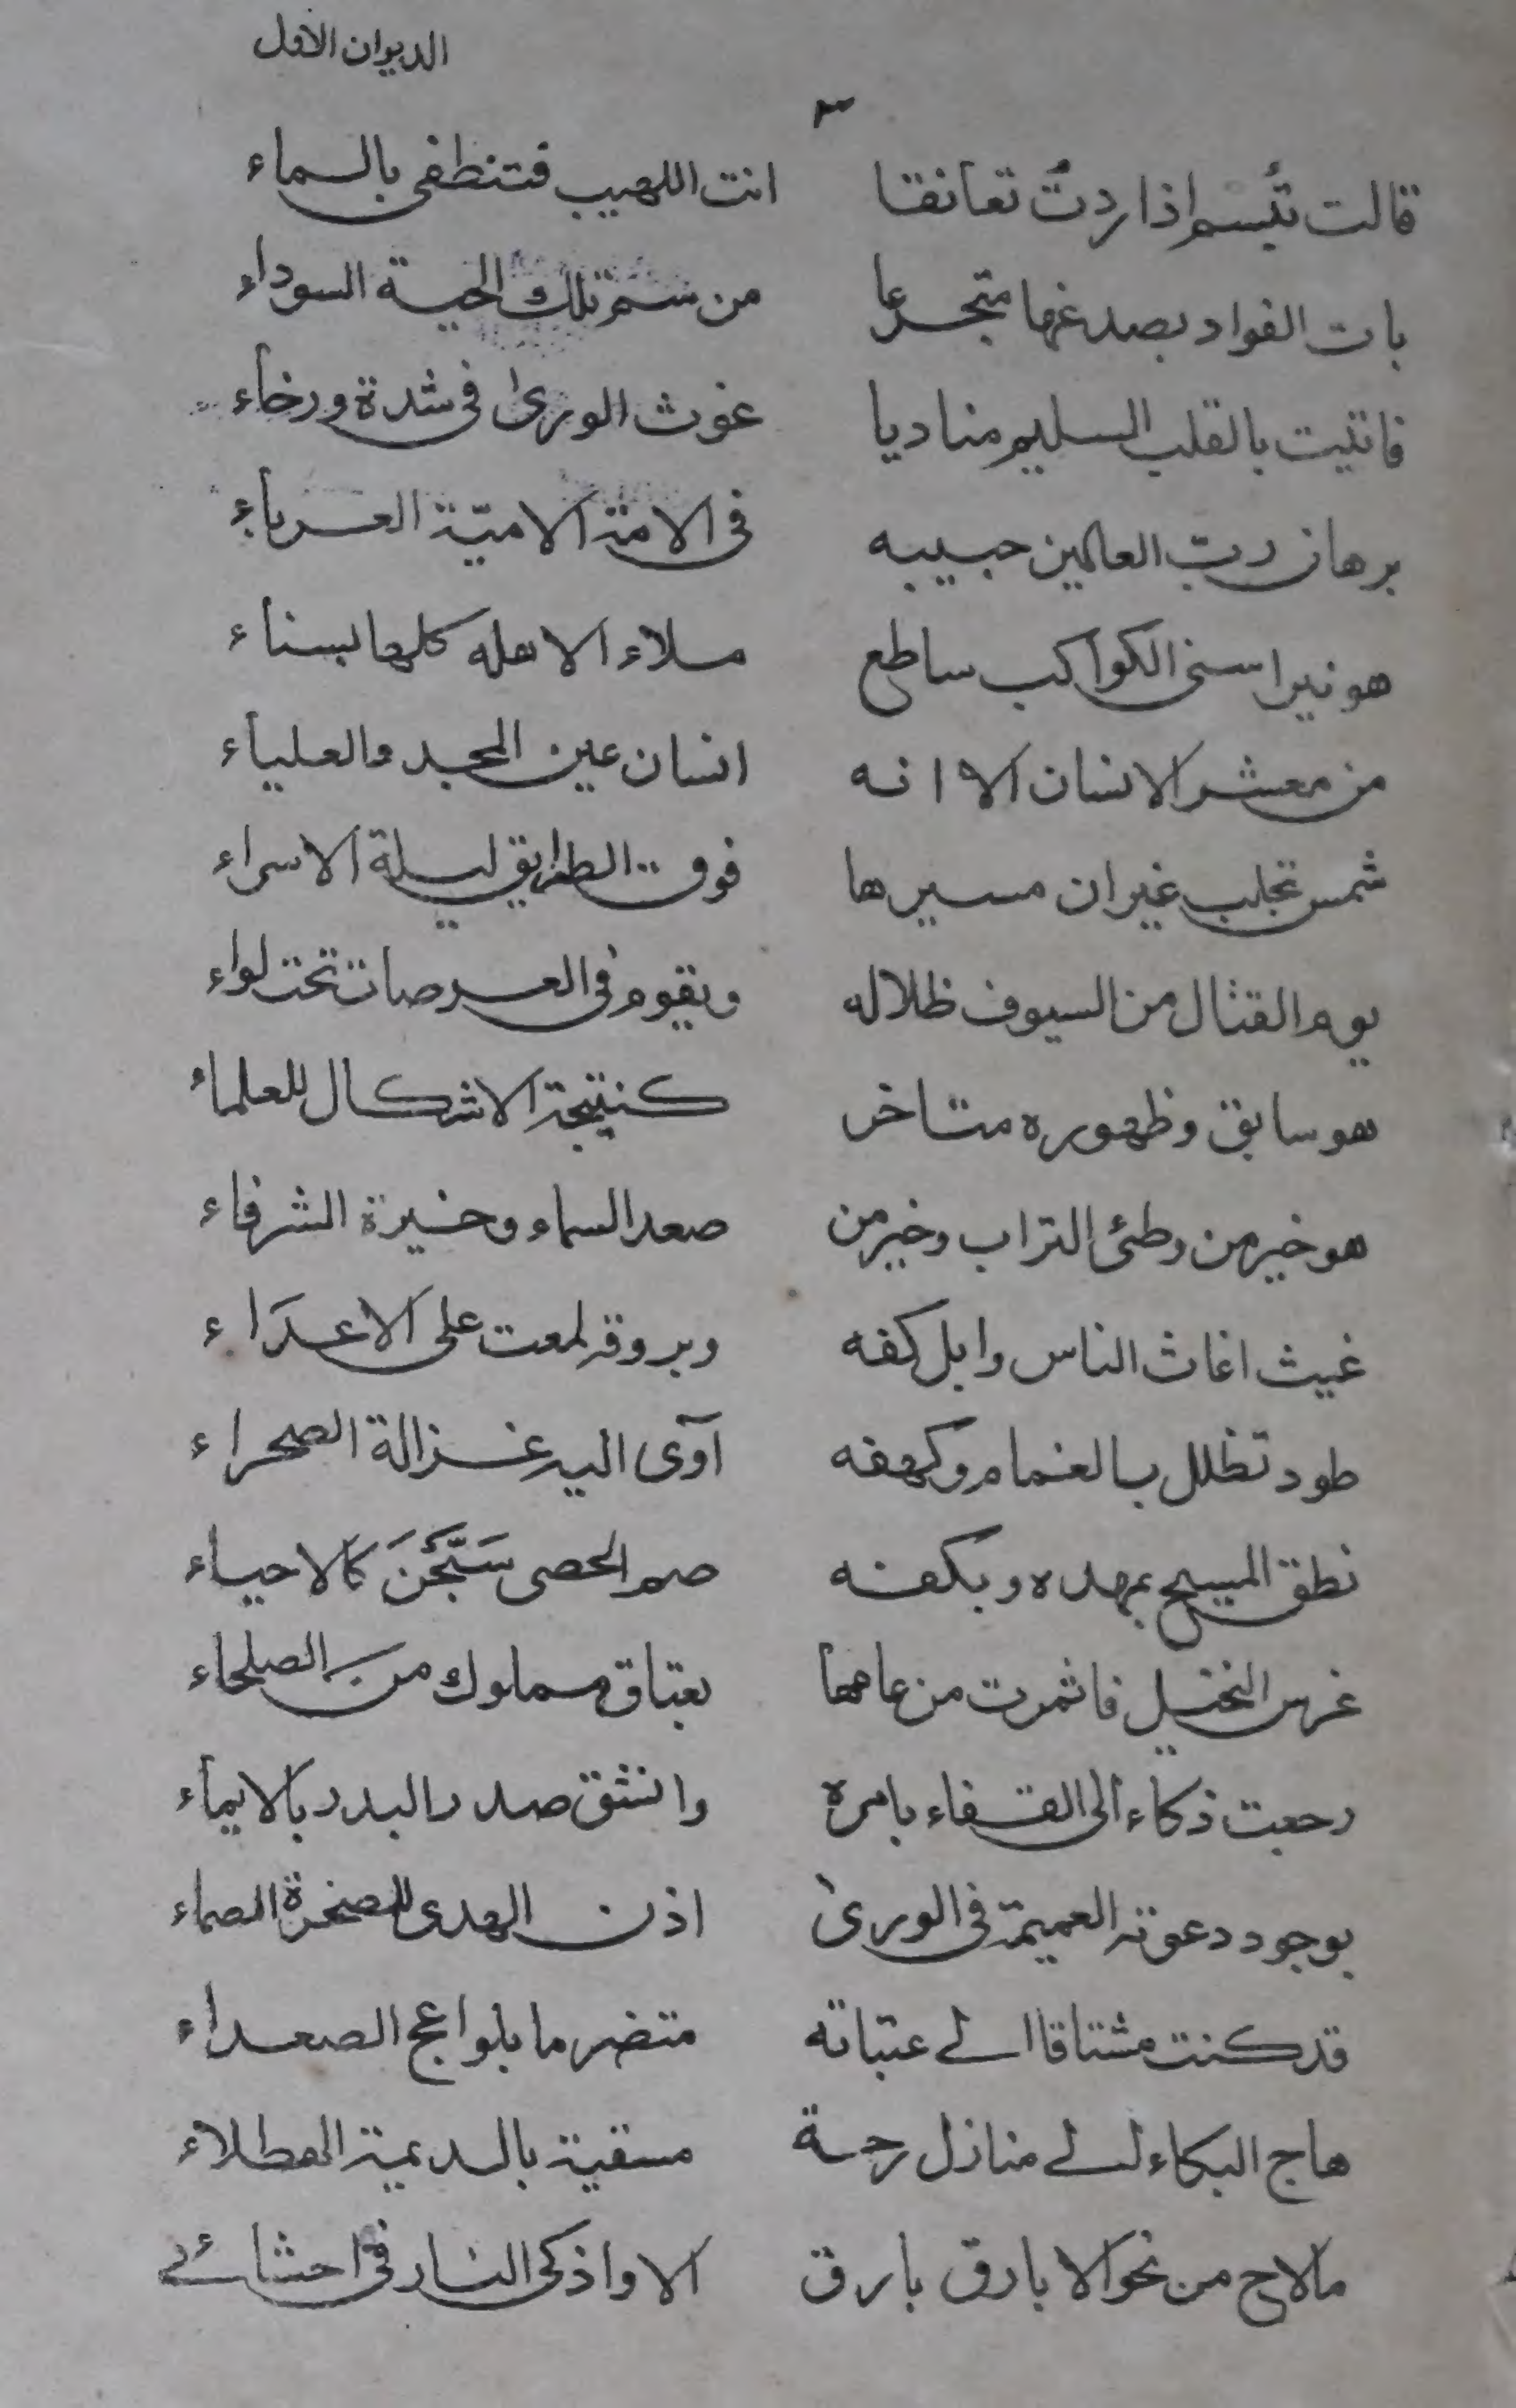 الديوان الاول
٣
قالت تبسم اذا ردت تعانقا انت اللهيب فتنطفى بالسماء
بات الفواد بصدغها متجرعا من سم تلك الحية السوداء
فاتيت بالقلب السليم مناديا غوث الورى فى شدة ورخاء
برهان رب العالمين حبيبه فى الامة الامية العرباء
هو نير اسنى الكواكب ساطع ملاء الاهله كلها بسناء
من معشر الانسان الا انه انسان عين المجد والعلياء
شمس تجلب غير ان مسيرها فوق الطرايق ليلة الاسراء
يوم القتال من السيوف ظلاله ويقوم فى العرصات تحت لواء
هو سابق وظهوره متاخر كنتيجة الاشكال للعلماء
هو خير من وطئ التراب وخير من صعد السماء وخيرة الشرفاء
غيث اغاث الناس وابل كفه وبروقه لمعت على الاعدَاء
طود تظلل بالغمام وكهفه آوى اليه غزالة الصحراء
نطق المسيح بمهده وبكفه صم الحصى سَبَّحْنَ كالاحياء
غرس النخيل فاثمرت من عامها بعتاق مملوك من الصلحاء
رجعت ذكاء الى القفاء بامره وانشق صدر البدر بالايماء
بوجود دعوته العميمة فى الورى اذن الهدى للصخرة الصماء
قد كنت مشتاقا الى عتباته متضرما بلواعج الصعداء
هاج البكاء لى منازل رحمة مسقية بالديمة الهطلاء
مالاح من نحو الا بارق بارق الا واذكى النار فى احشائى